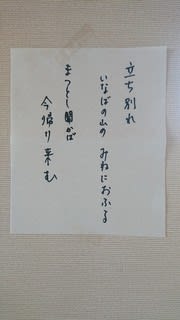 立ち別れ
いなばの山の みねにおふる
まつとし聞かば
今帰り来む